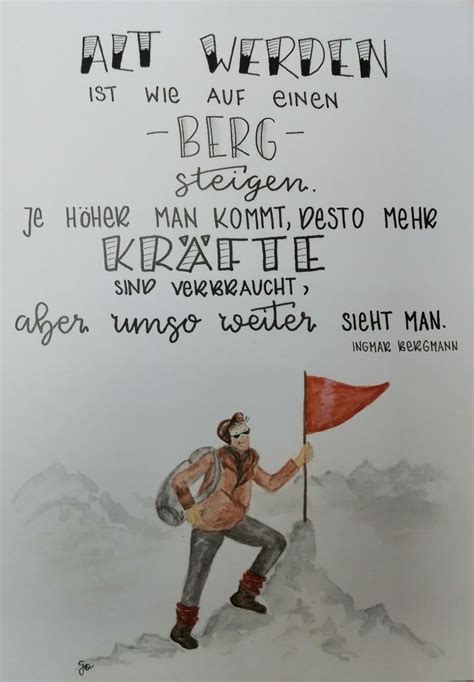 ALT WERDEN
IST WIE AUF EINEN
-BERG-
steigen.
JE HÖHER MAN KOMMT, DESTO MEHR
KRÄFTE
SIND VERBRAUCHT,
aber umso weiter SIEHT MAN.
INGMAR BERGMANN
go